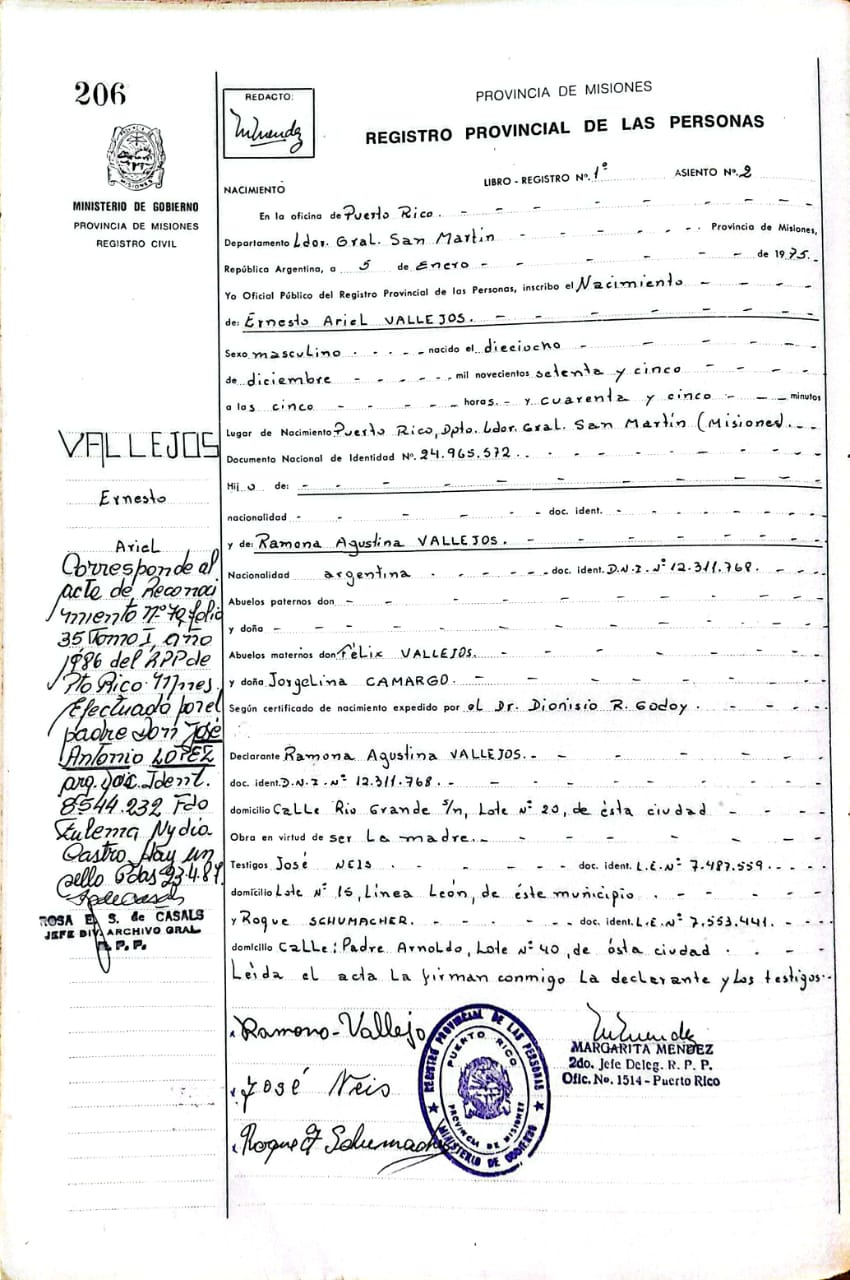 206
MISIONES
MINISTERIO DE GOBIERNO
PROVINCIA DE MISIONES
REGISTRO CIVIL
REDACTO:
PROVINCIA DE MISIONES
REGISTRO PROVINCIAL DE LAS PERSONAS
LIBRO - REGISTRO Nº. 1º ASIENTO Nº. 2
NACIMIENTO
En la oficina de Puerto Rico.
Departamento Ldor. Gral. San Martín Provincia de Misiones,
República Argentina, a 5 de Enero de 1975.
Yo Oficial Público del Registro Provincial de las Personas, inscribo el Nacimiento
de: Ernesto Ariel VALLEJOS.
Sexo masculino nacido el dieciocho
de diciembre mil novecientos setenta y cinco
a las cinco horas. y cuarenta y cinco minutos
Lugar de Nacimiento Puerto Rico, Dpto. Ldor. Gral. San Martín (Misiones).
Documento Nacional de Identidad Nº. 24.965.572.
Hijo de:
nacionalidad doc. ident.
y de: Ramona Agustina VALLEJOS.
Nacionalidad argentina doc. ident. D.N.I. Nº 12.311.768.
Abuelos paternos don
y doña
Abuelos maternos don Félix VALLEJOS.
y doña Jorgelina CAMARGO.
Según certificado de nacimiento expedido por el Dr. Dionisio R. Godoy.
Declarante Ramona Agustina VALLEJOS.
doc. ident. D.N.I. Nº 12.311.768.
domicilio Calle Río Grande s/n, Lote Nº 20, de ésta ciudad
Obra en virtud de ser La madre.
Testigos José NEIS. doc. ident. L.E. Nº 7.487.559
domicilio Lote Nº 15, Línea León, de éste municipio.
y Roque SCHUMACHER. doc. ident. L.E. Nº 7.553.441.
domicilio Calle: Padre Arnoldo, Lote Nº 40, de ésta ciudad.
Leída el acta La firman conmigo La declarante y Los testigos.
VALLEJOS
Ernesto
Ariel
Corresponde al
acta de Reconoci
miento nº 79 folio
35 Tomo I, año
1986 del RPP de
Pto Rico Mnes
Efectuado por el
padre Don José
Antonio LOPEZ
arg. doc. Ident.
8544.232 Fdo
Zulema Nydia
Castro Hay un
sello Pdas 23.4.87
ROSA E. S. de CASALS
JEFE DIV. ARCHIVO GRAL.
R. P. P.
Ramona Vallejo
José Neis
Roque F Schumacher
REGISTRO PROVINCIAL DE LAS PERSONAS
PUERTO RICO
PROVINCIA DE MISIONES
MINISTERIO DE GOBIERNO
MARGARITA MENDEZ
2do. Jefe Deleg. R. P. P.
Ofic. No. 1514 - Puerto Rico